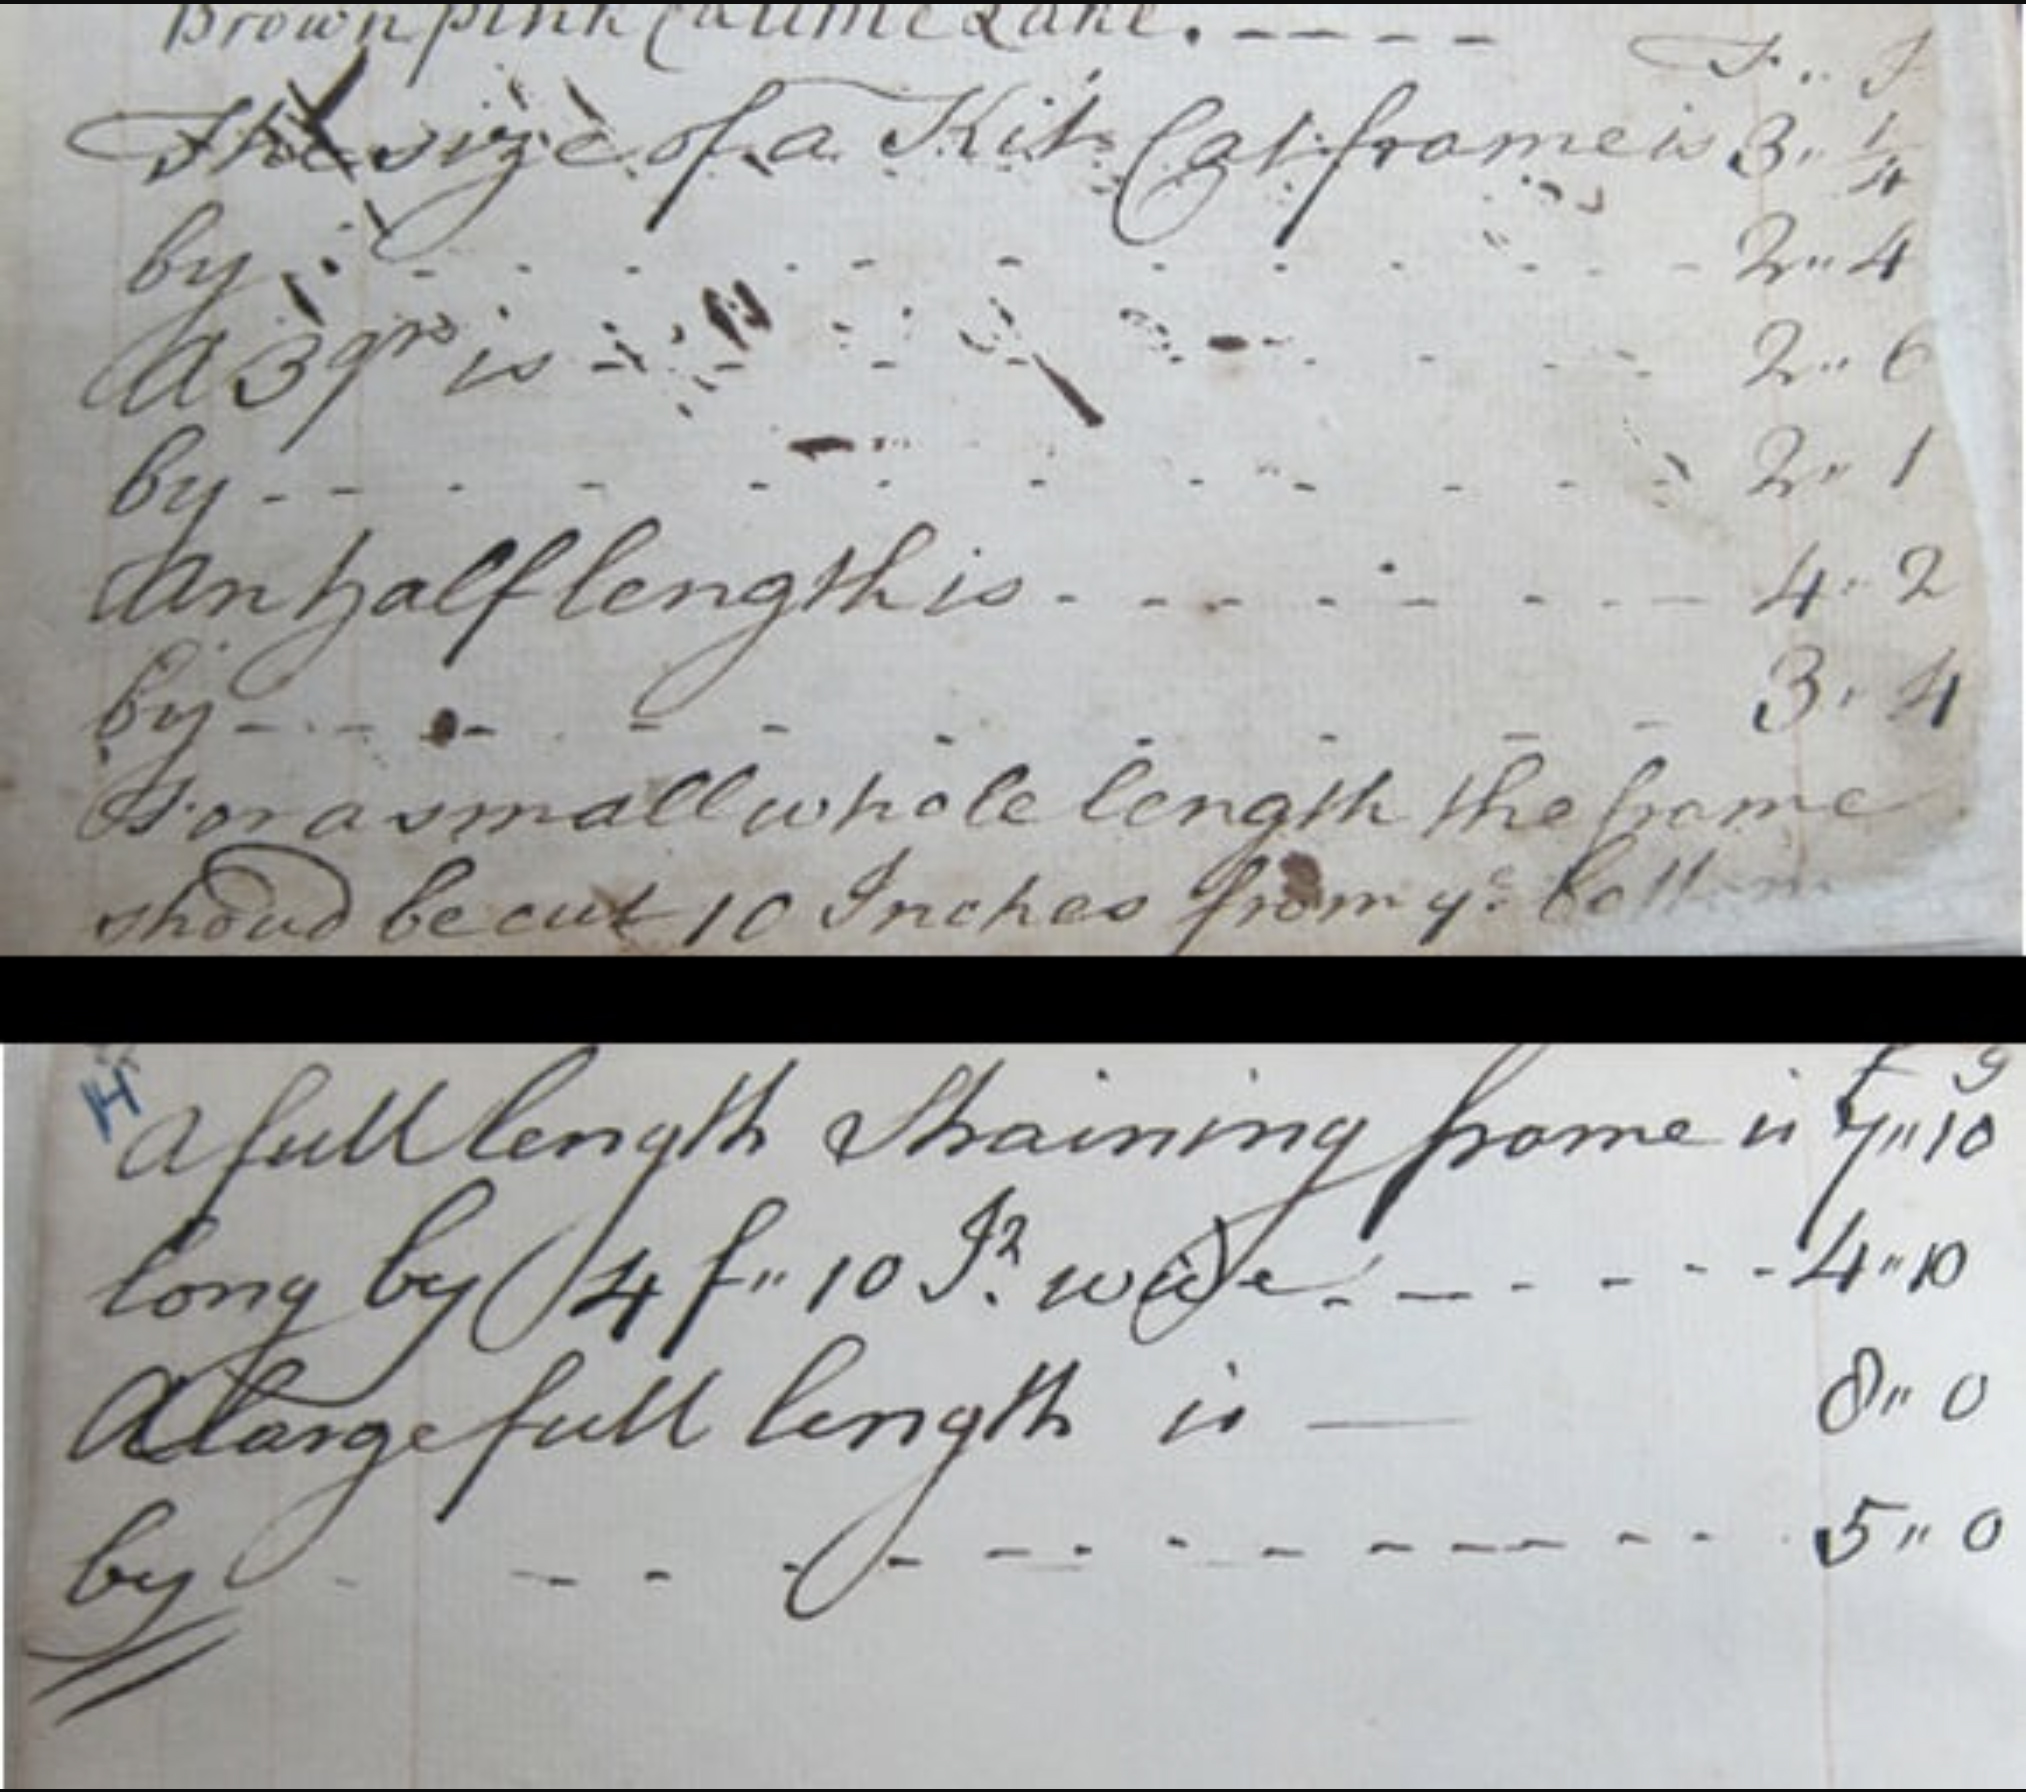 Brown pink Calline Lake. - - - -
F " I
The size of a Kit Cat frame is 3 " 1/4
by - - - - - - - - - - - 2 " 4
A 3 qrs is - - - - - - - - 2 " 6
by - - - - - - - - - - - 2 " 1
An half length is - - - - - - - - 4 " 2
by - - - - - - - - - - 3 " 4
For a small whole length the frame
shoud be cut 10 Inches from ye bottom
14
f I
A full length Straining frame is 7 " 10
long by 4 f " 10 Is. wide - - - - - - 4 " 10
A large full length is — 8 " 0
by - - - - - - - - - - - - 5 " 0